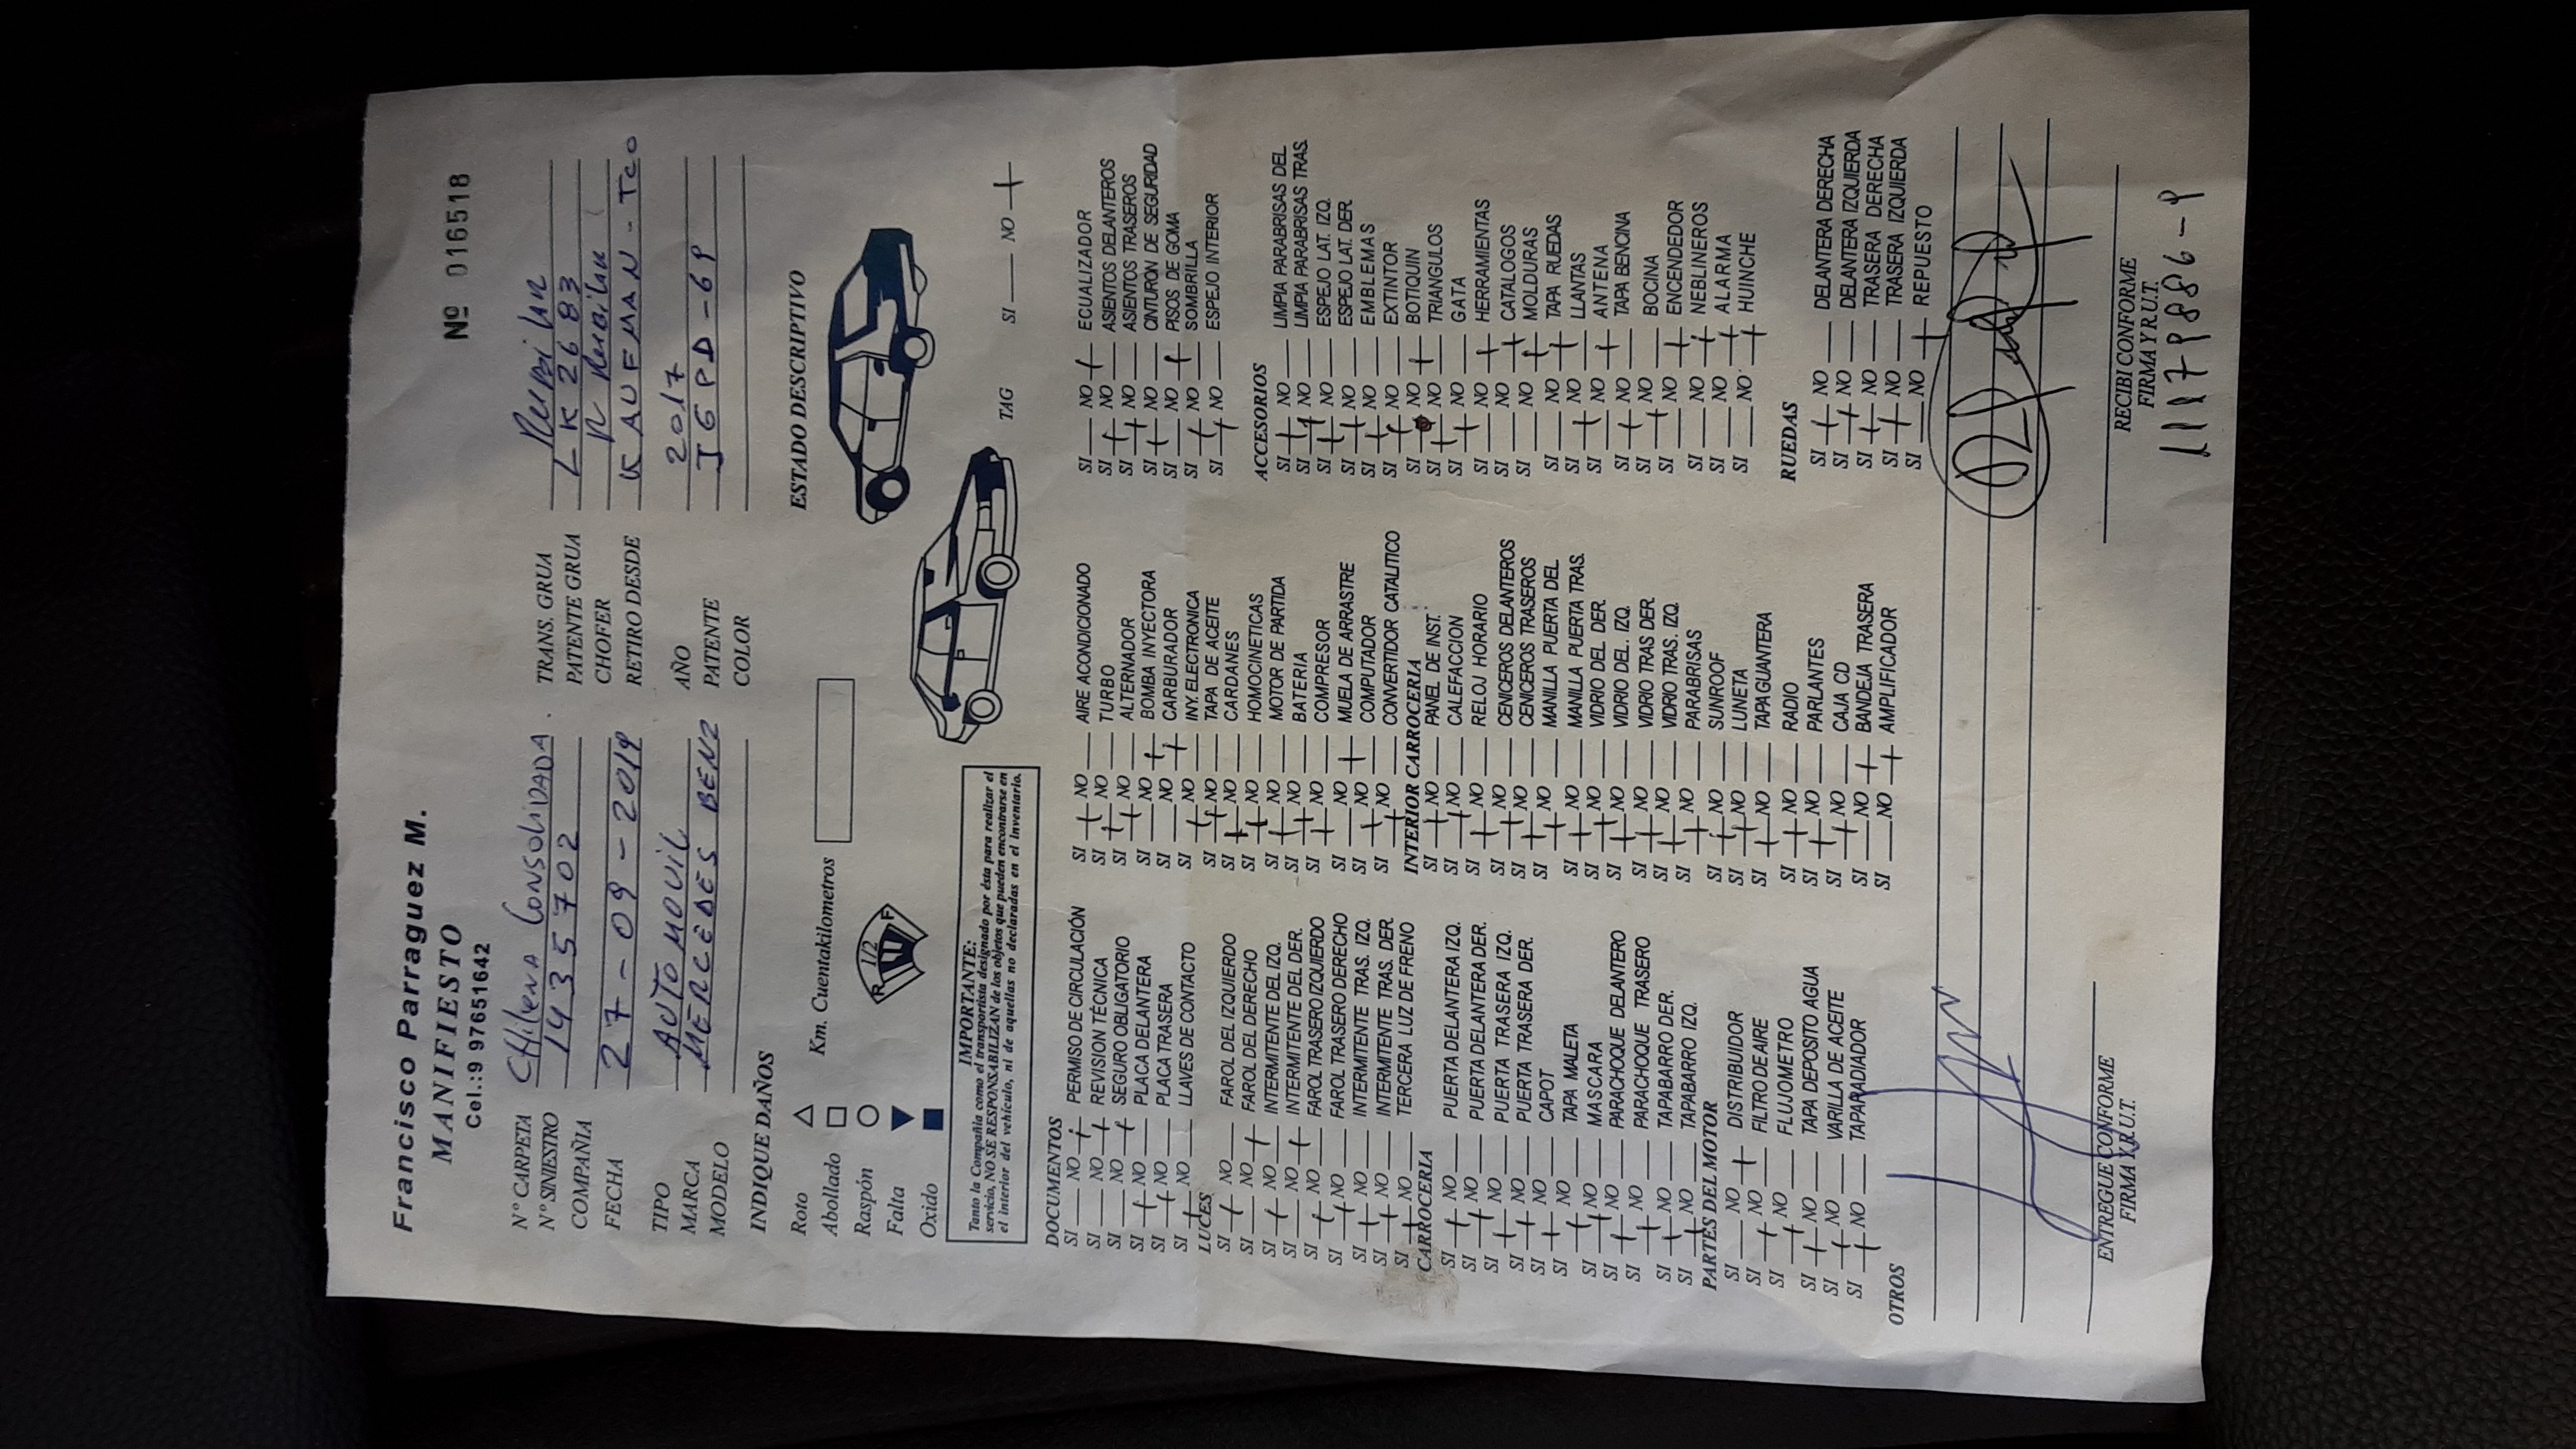 Francisco Parraguez M.
MANIFIESTO
Cel.:9 97651642
Nº 016518
Nº CARPETA CHILENA CONSOLIDADA.
Nº SINIESTRO 1435702
COMPAÑIA
FECHA 27-09-2019
TIPO AUTOMOVIL
MARCA MERCEDES BENZ
MODELO
TRANS. GRUA
PATENTE GRUA LK 2683
CHOFER
RETIRO DESDE KAUFMAN - TCO
AÑO 2017
PATENTE JGPD-69
COLOR
INDIQUE DAÑOS
Roto
Abollado
Raspón
Falta
Oxido
Km. Cuentakilometros
R 1/2 F
ESTADO DESCRIPTIVO
IMPORTANTE:
Tanto la Compañía como el transportista designado por ésta para realizar el
servicio, NO SE RESPONSABILIZAN de los objetos que pueden encontrarse en
el interior del vehículo, ni de aquellas no declaradas en el inventario.
TAG SI NO +
DOCUMENTOS
SI NO + PERMISO DE CIRCULACIÓN
SI NO + REVISION TÉCNICA
SI NO + SEGURO OBLIGATORIO
SI + NO PLACA DELANTERA
SI + NO PLACA TRASERA
SI + NO LLAVES DE CONTACTO
LUCES
SI + NO FAROL DEL IZQUIERDO
SI NO + FAROL DEL DERECHO
SI + NO INTERMITENTE DEL IZQ.
SI NO + INTERMITENTE DEL DER.
SI + NO FAROL TRASERO IZQUIERDO
SI + NO FAROL TRASERO DERECHO
SI + NO INTERMITENTE TRAS. IZQ.
SI + NO INTERMITENTE TRAS. DER.
SI + NO TERCERA LUZ DE FRENO
CARROCERIA
SI + NO PUERTA DELANTERA IZQ.
SI + NO PUERTA DELANTERA DER.
SI + NO PUERTA TRASERA IZQ.
SI + NO PUERTA TRASERA DER.
SI + NO CAPOT
SI + NO TAPA MALETA
SI + NO MASCARA
SI + NO PARACHOQUE DELANTERO
SI + NO PARACHOQUE TRASERO
SI + NO TAPABARRO DER.
SI + NO TAPABARRO IZQ.
PARTES DEL MOTOR
SI NO + DISTRIBUIDOR
SI + NO FILTRO DE AIRE
SI + NO FLUJOMETRO
SI + NO TAPA DEPOSITO AGUA
SI + NO VARILLA DE ACEITE
SI + NO TAPARADIADOR
SI + NO AIRE ACONDICIONADO
SI + NO TURBO
SI + NO ALTERNADOR
SI NO + BOMBA INYECTORA
SI NO + CARBURADOR
SI + NO INY. ELECTRONICA
SI + NO TAPA DE ACEITE
SI + NO CARDANES
SI + NO HOMOCINETICAS
SI + NO MOTOR DE PARTIDA
SI + NO BATERIA
SI + NO COMPRESOR
SI NO + MUELA DE ARRASTRE
SI + NO COMPUTADOR
SI + NO CONVERTIDOR CATALITICO
INTERIOR CARROCERIA
SI + NO PANEL DE INST.
SI + NO CALEFACCION
SI + NO RELOJ HORARIO
SI + NO CENICEROS DELANTEROS
SI + NO CENICEROS TRASEROS
SI + NO MANILLA PUERTA DEL
SI + NO MANILLA PUERTA TRAS.
SI + NO VIDRIO DEL DER.
SI + NO VIDRIO DEL. IZQ.
SI + NO VIDRIO TRAS DER.
SI + NO VIDRIO TRAS. IZQ.
SI + NO PARABRISAS
SI + NO SUNROOF
SI + NO LUNETA
SI + NO TAPAGUANTERA
SI + NO RADIO
SI + NO PARLANTES
SI + NO CAJA CD
SI NO + BANDEJA TRASERA
SI NO + AMPLIFICADOR
SI NO + ECUALIZADOR
SI + NO ASIENTOS DELANTEROS
SI + NO ASIENTOS TRASEROS
SI + NO CINTURÓN DE SEGURIDAD
SI NO + PISOS DE GOMA
SI + NO SOMBRILLA
SI + NO ESPEJO INTERIOR
ACCESORIOS
SI + NO LIMPIA PARABRISAS DEL
SI + NO LIMPIA PARABRISAS TRAS.
SI + NO ESPEJO LAT. IZQ.
SI + NO ESPEJO LAT. DER.
SI + NO EMBLEMAS
SI + NO EXTINTOR
SI NO + BOTIQUIN
SI + NO TRIANGULOS
SI + NO GATA
SI NO + HERRAMIENTAS
SI NO + CATALOGOS
SI NO + MOLDURAS
SI NO + TAPA RUEDAS
SI + NO LLANTAS
SI NO + ANTENA
SI + NO TAPA BENCINA
SI + NO BOCINA
SI NO + ENCENDEDOR
SI NO + NEBLINEROS
SI NO + ALARMA
SI NO + HUINCHE
RUEDAS
SI + NO DELANTERA DERECHA
SI + NO DELANTERA IZQUIERDA
SI + NO TRASERA DERECHA
SI + NO TRASERA IZQUIERDA
SI NO + REPUESTO
OTROS
ENTREGUE CONFORME
FIRMA Y R.U.T.
RECIBI CONFORME
FIRMA Y R.U.T.
11179886-9